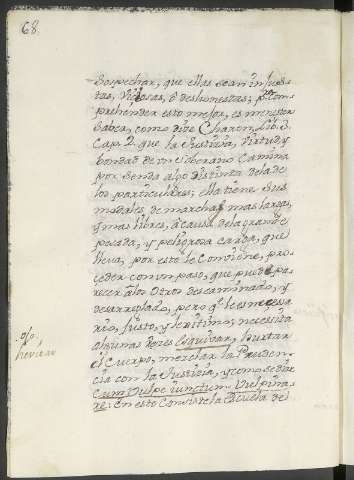 68.
Sospechar, que ellas sean injus-
tas, Viciosas, ô deshonestas; pa com
prehender esto mejor, es menester
saber, como dize Charon, Lib. 3.
Cap. 2. que la Justicia, Virtud, y
bondad de un Soberano Camina
por senda algo distinta de la de
los particulares; ella tiene sus
modales, de marchas mas largas,
y mas libres, à causa de la grande
pesada, y peligrosa carga, que
lleva, por esto le Conviene, pro-
ceder con un paso, que puede pa-
recer à los Otros descaminado, y
desarreglado, pero qe le es necessa
rio, Justo, y legitimo; necesita
algunas Vezes Esquivar, hurtar
el Cuerpo, mezclar la Pruden-
cia con la Justicia, y como se dize
Cum Vulpe iunctum Vulpina-
re: En esto Consiste la Escuela de